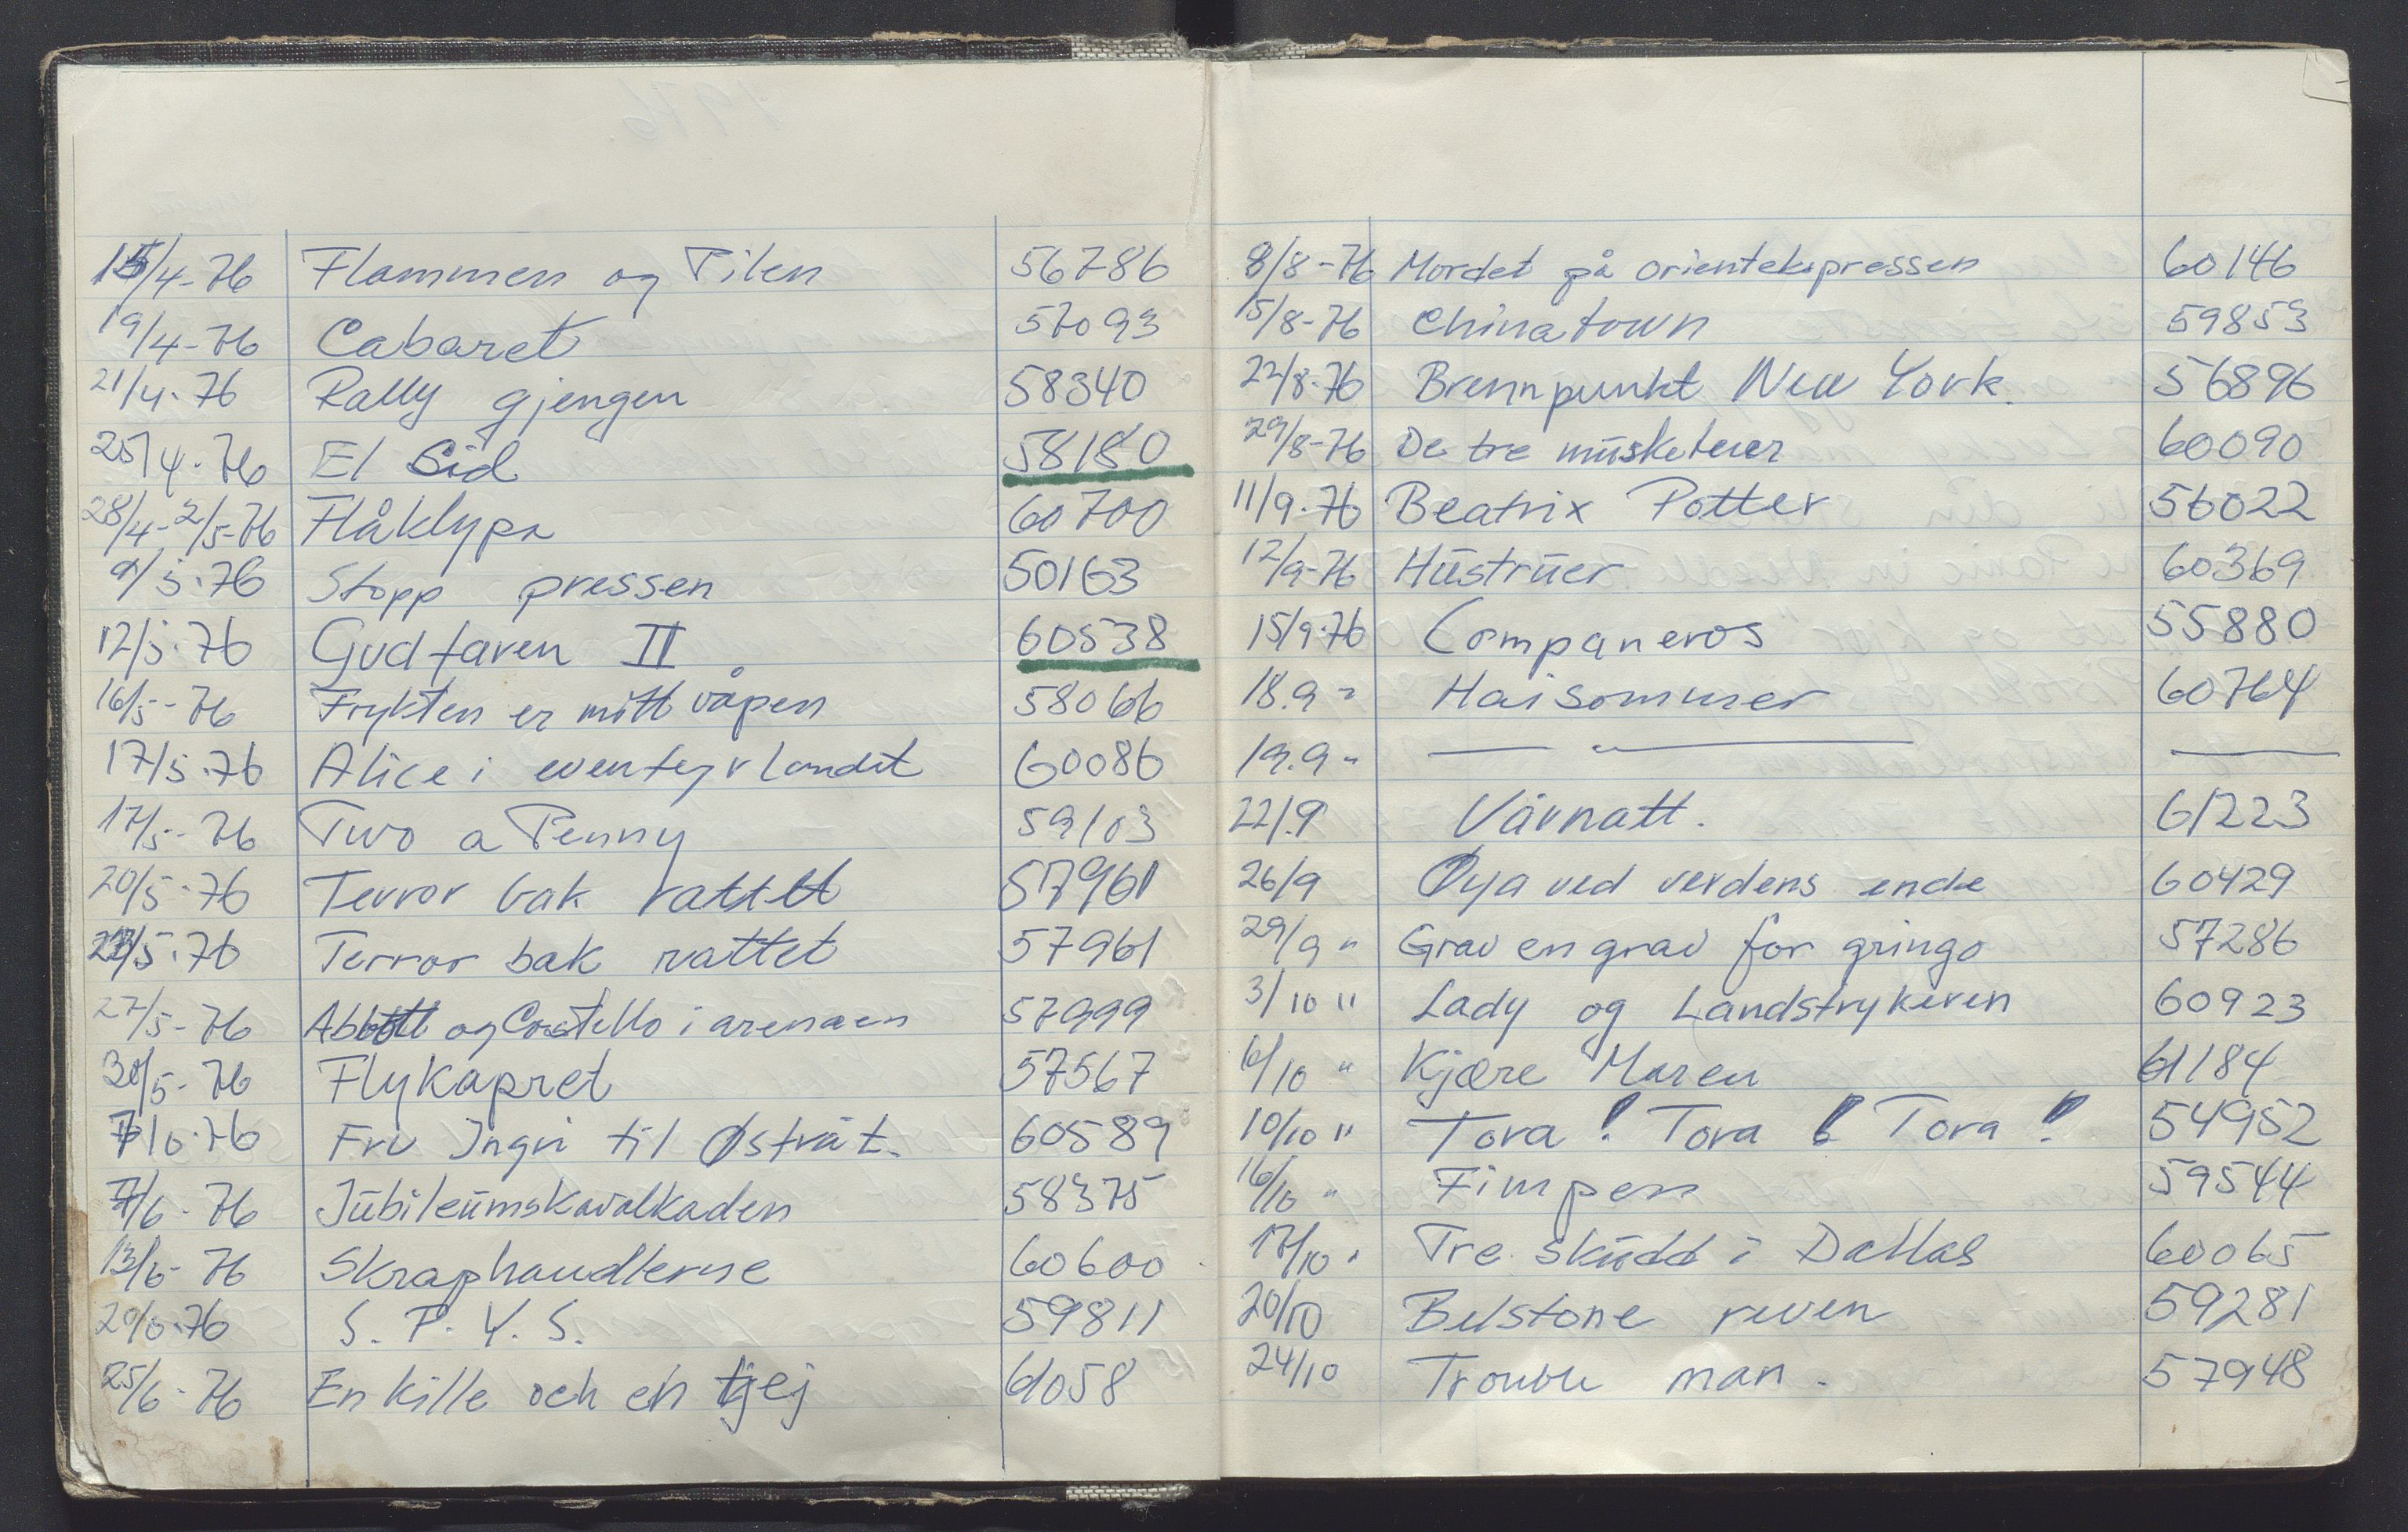 15/4-76 Flammen og Pilen 56786
19/4-76 Cabaret 57093
21/4-76 Rally gjengen 58340
25/4-76 El Cid 58180
28/4-2/5-76 Flåklypa 60700
9/5-76 Stopp pressen 50163
12/5-76 Gudfaren II 60538
16/5-76 Frykten er mitt våpen 58066
17/5-76 Alice i eventyrlandet 60086
17/5-76 Two a Penny 59103
20/5-76 Terror bak rattet 57961
23/5-76 Terror bak rattet 57961
27/5-76 Abbott og Costello i arenaen 57999
30/5-76 Flykapret 57567
7/6-76 Fru Ingri til Østråt. 60589
7/6-76 Jubileumskavalkaden 58375
13/6-76 Skraphandlerne 60600
20/6-76 S. P. Y. S. 59811
25/6-76 En kille och en tjej 61058
8/8-76 Mordet på orientekspressen 60146
15/8-76 Chinatown 59853
22/8-76 Brennpunkt New York. 56896
29/8-76 De tre musketerer 60090
11/9-76 Beatrix Potter 56022
12/9-76 Hustruer 60369
15/9-76 Companeros 55880
18.9 " Haisommer 60764
19.9 " — " — —
22/9 Vårnatt. 61223
26/9 Øya ved verdens ende 60429
29/9 " Grav en grav for gringo 57286
3/10 " Lady og Landstrykeren 60923
6/10 " Kjære Maren 61184
10/10 " Tora! Tora! Tora! 54952
16/10 " Fimpen 59544
17/10 " Tre skudd i Dallas 60065
20/10 Belstone reven 59281
24/10 Trouble man. 57948